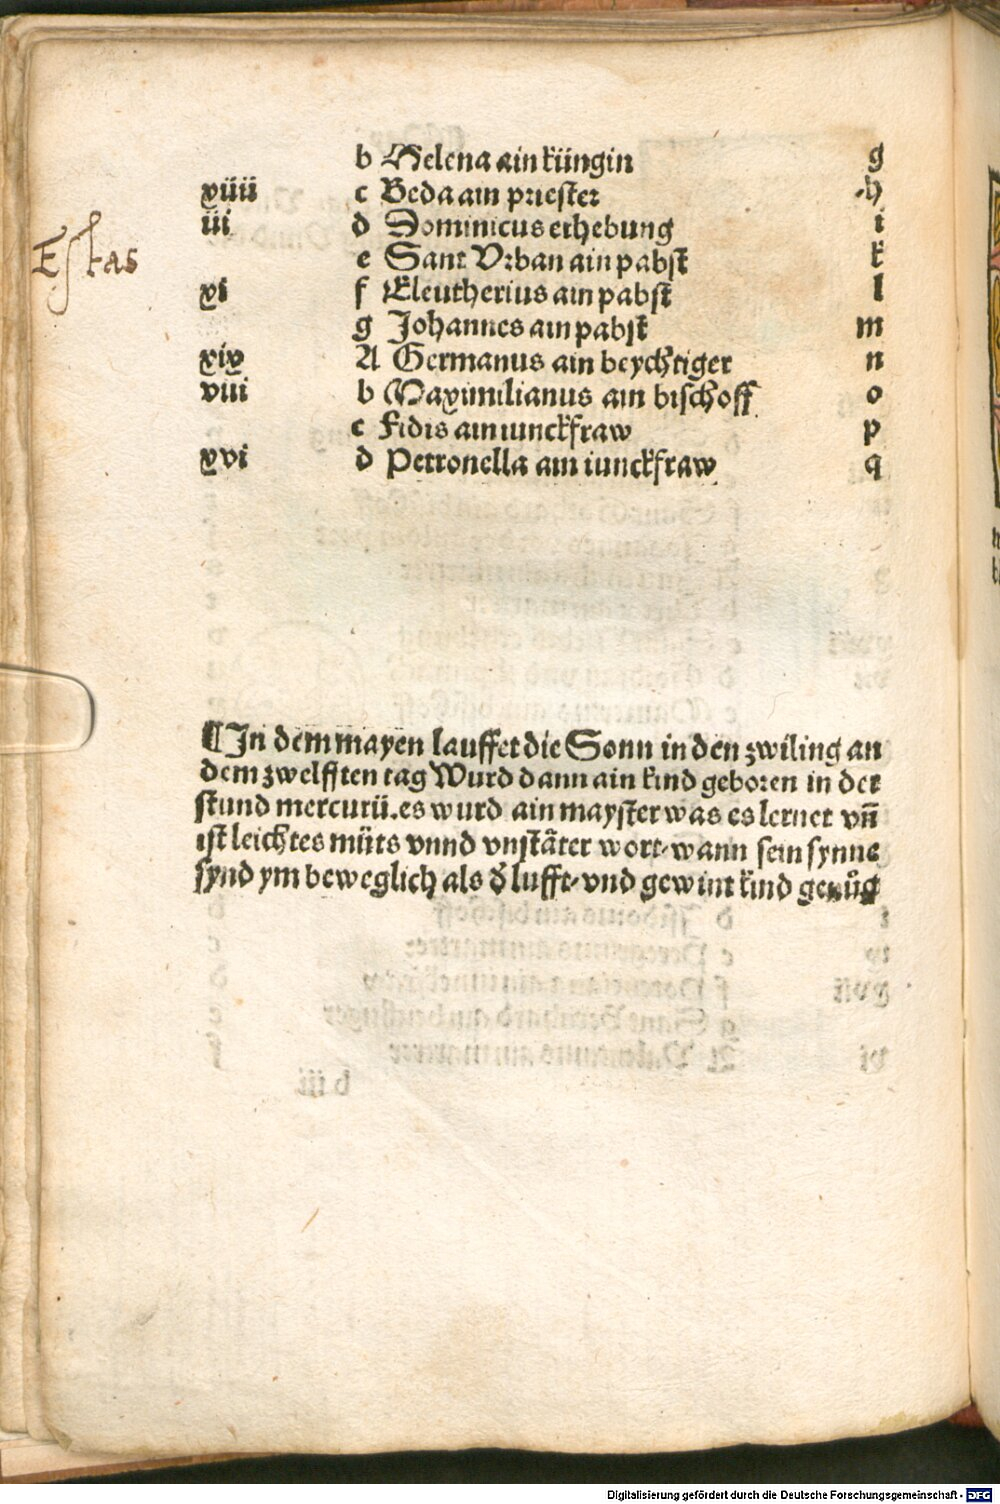 b Helena ain küngin g
xiiii c Beda ain priester h
iii d Dominicus erhebung i
e Sant Vrban ain pabst k
Estas
xi f Eleutherius ain pabst l
g Johannes ain pabst m
xix A Germanus ain beychtiger n
viii b Maximilianus ain bischoff o
c Fidis ain iunckfraw p
xvi d Petronella ain iunckfraw q
¶ In dem mayen lauffet die Sonn in den zwiling an
dem zwelfften tag Wurd dann ain kind geboren in der
stund mercurii. es wurd ain mayster was es lernet vn̄
ist leichtes můts vnnd vnstäter wort, wann sein synne
synd ym beweglich als d̓ lufft, vnd gewint kind genůg
b iii
Digitalisierung gefördert durch die Deutsche Forschungsgemeinschaft - DFG